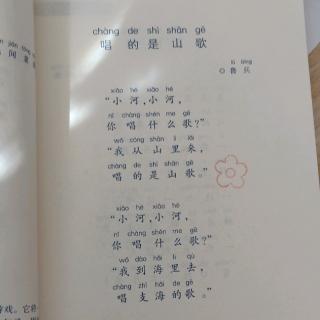 chàng de shì shān gē
唱的是山歌
lǔ bīng
◎鲁兵
xiǎo hé xiǎo hé
“小河,小河,
nǐ chàng shén me gē
你唱什么歌?”
wǒ cóng shān lǐ lái
“我从山里来,
chàng de shì shān gē
唱的是山歌。”
xiǎo hé xiǎo hé
“小河,小河,
nǐ chàng shén me gē
你唱什么歌?”
wǒ dào hǎi lǐ qù
“我到海里去,
chàng zhī hǎi de gē
唱支海的歌。”